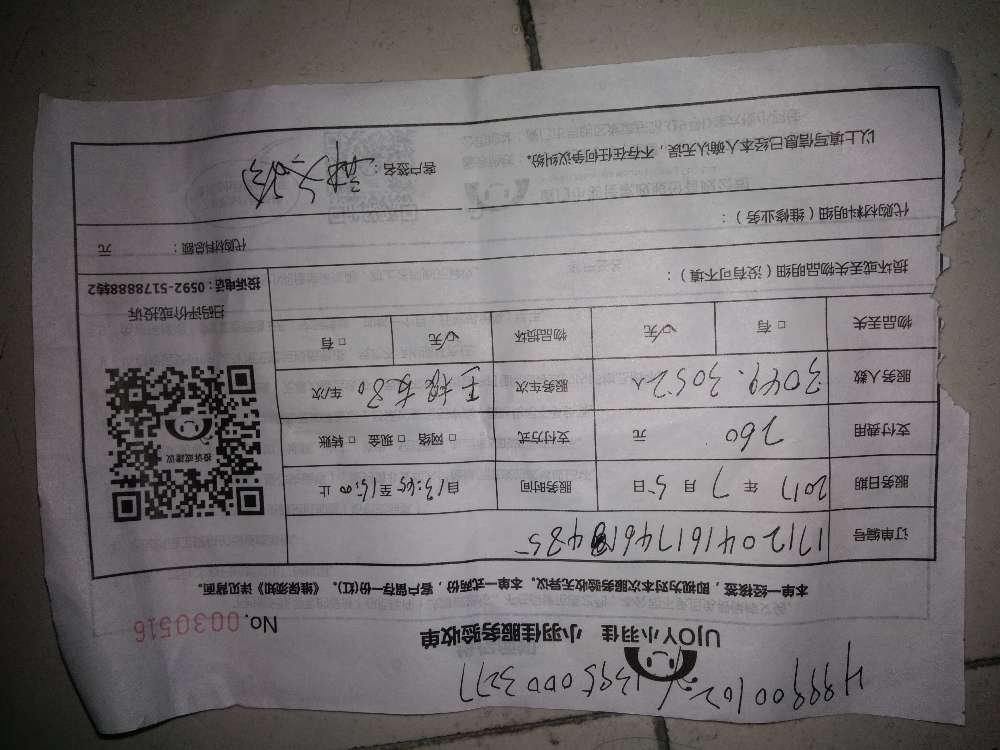 499900102 13950003277
UJOY小羽佳 小羽佳服务验收单
No. 0030516
本单一经接签，即视为对本次服务验收无异议。本单一式两份，客户留存一份(红)。《维保须知》详见背面。
订单编号
服务日期 2017 年 7 月 5 日 服务时间 自13:45至15:00止
支付费用 260 元 支付方式 □ 网络 □ 现金 □ 转账
服务人数 3049. 3052 人 服务车次 80 车/次
物品丢失 □ 有 ☑无 物品损坏 ☑无 □ 有
投诉或建议
扫码评价或投诉
投诉电话：0592-5178888转2
损坏或丢失物品明细（没有可不填）：
代购材料明细（维修业务）： 代购材料总额： 元
以上填写信息已经本人确认无误，不存在任何争议纠纷。 客户签名：